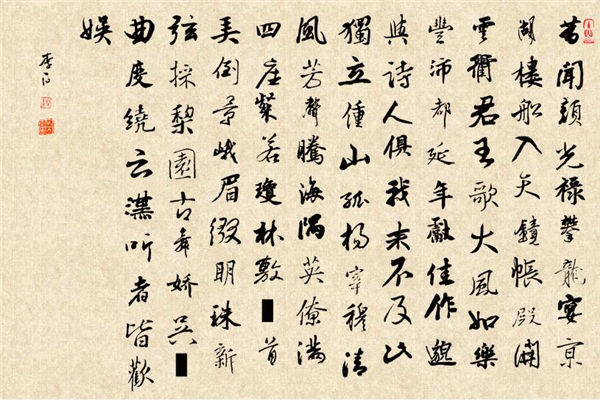 昔聞顏光祿攀龍宴京
湖樓船入天鏡帳殿開
雲衢君王歌大風如樂
豐沛都延年獻佳作邈
與詩人俱我來不及此
獨立鍾山孤楊宰穆清
風芳聲騰海隅英僚滿
四座粲若瓊林敷■首
弄倒景峨眉綴明珠新
弦採梨園古舞嬌吳■
曲度繞云漢听者皆歡
娛
李白